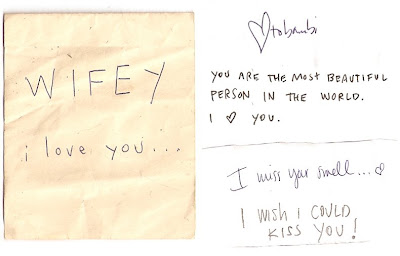 WIFEY
i love you...
♡ to bambi
YOU ARE THE MOST BEAUTIFUL
PERSON IN THE WORLD.
I ♡ YOU.
I miss your smell...♡
I WISH I COULD
KISS YOU!